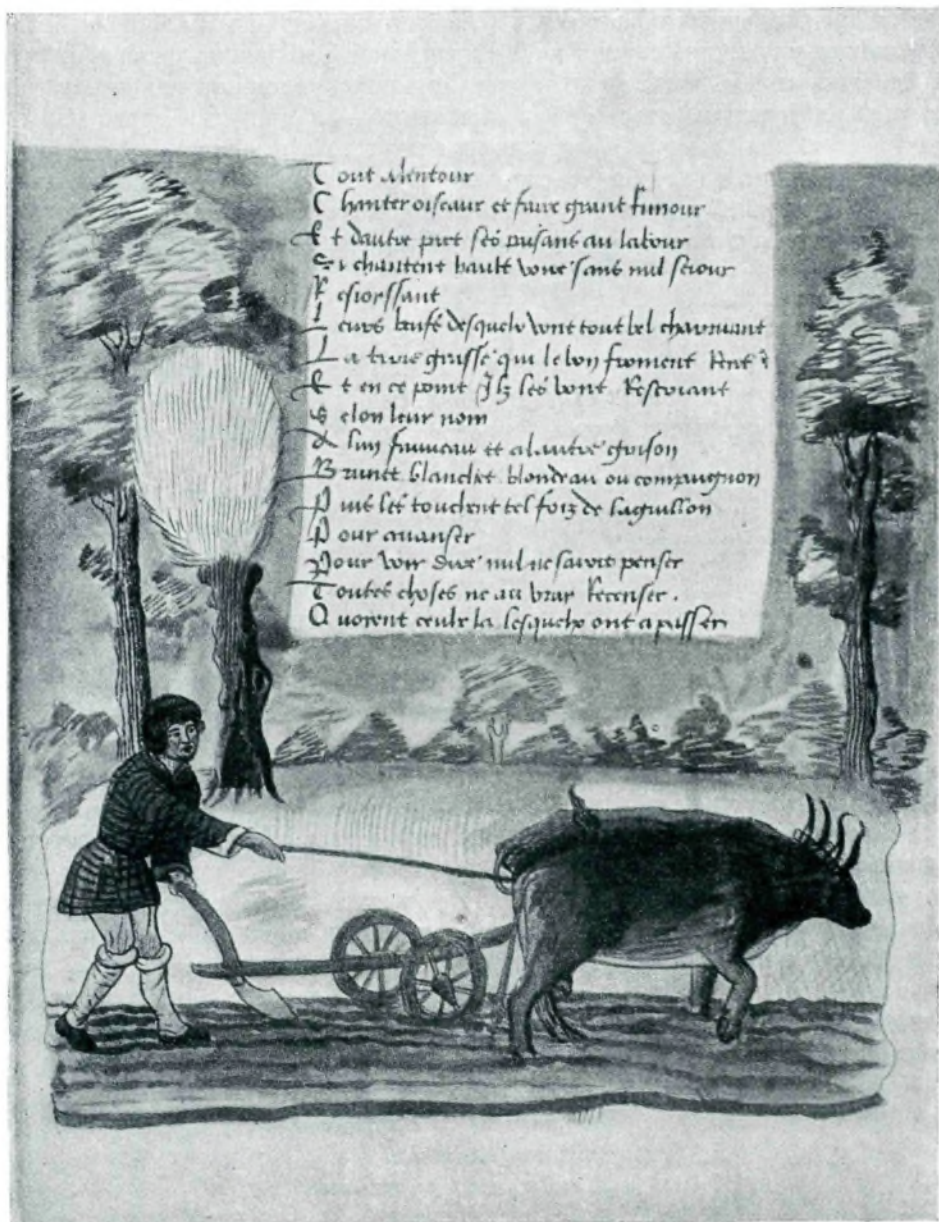 Tout alentour
Chanter oiseaux et faire grant rimour
Et dautre part ses paisans au labour
Si chantent hault voire sans nul seiour
Resiorssant
Leurs beufs desquelx vont tout bel charruiant
La terre grasse qui le bon froment Rent
Et en ce point Ilz les vont Rescriant
Selon leur nom
A lun fauveau et a lautre grison
Brunet blanchet blondeau ou compaignon
Puis les touchent tel foiz de laguillon
Pour avanser
Pour voir dire nul ne savroit penser
Toutes choses ne au vray Recenser
Quoient ceulx la lesquelx ont a passer